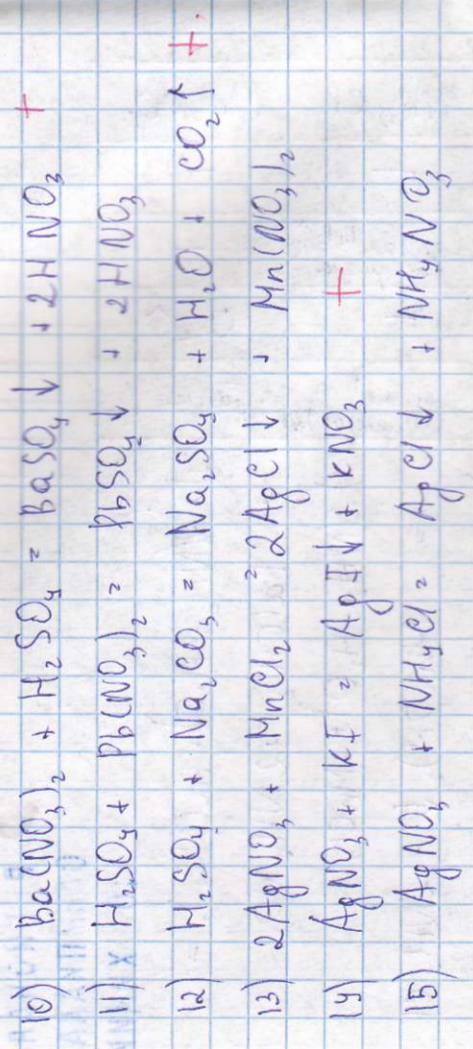 10) Ba(NO₃)₂ + H₂SO₄ = BaSO₄↓ + 2HNO₃ +
11) H₂SO₄ + Pb(NO₃)₂ = PbSO₄↓ + 2HNO₃
12) H₂SO₄ + Na₂CO₃ = Na₂SO₄ + H₂O + CO₂↑ +.
13) 2AgNO₃ + MnCl₂ = 2AgCl↓ + Mn(NO₃)₂
14) AgNO₃ + KI = AgI↓ + KNO₃ +
15) AgNO₃ + NH₄Cl = AgCl↓ + NH₄NO₃